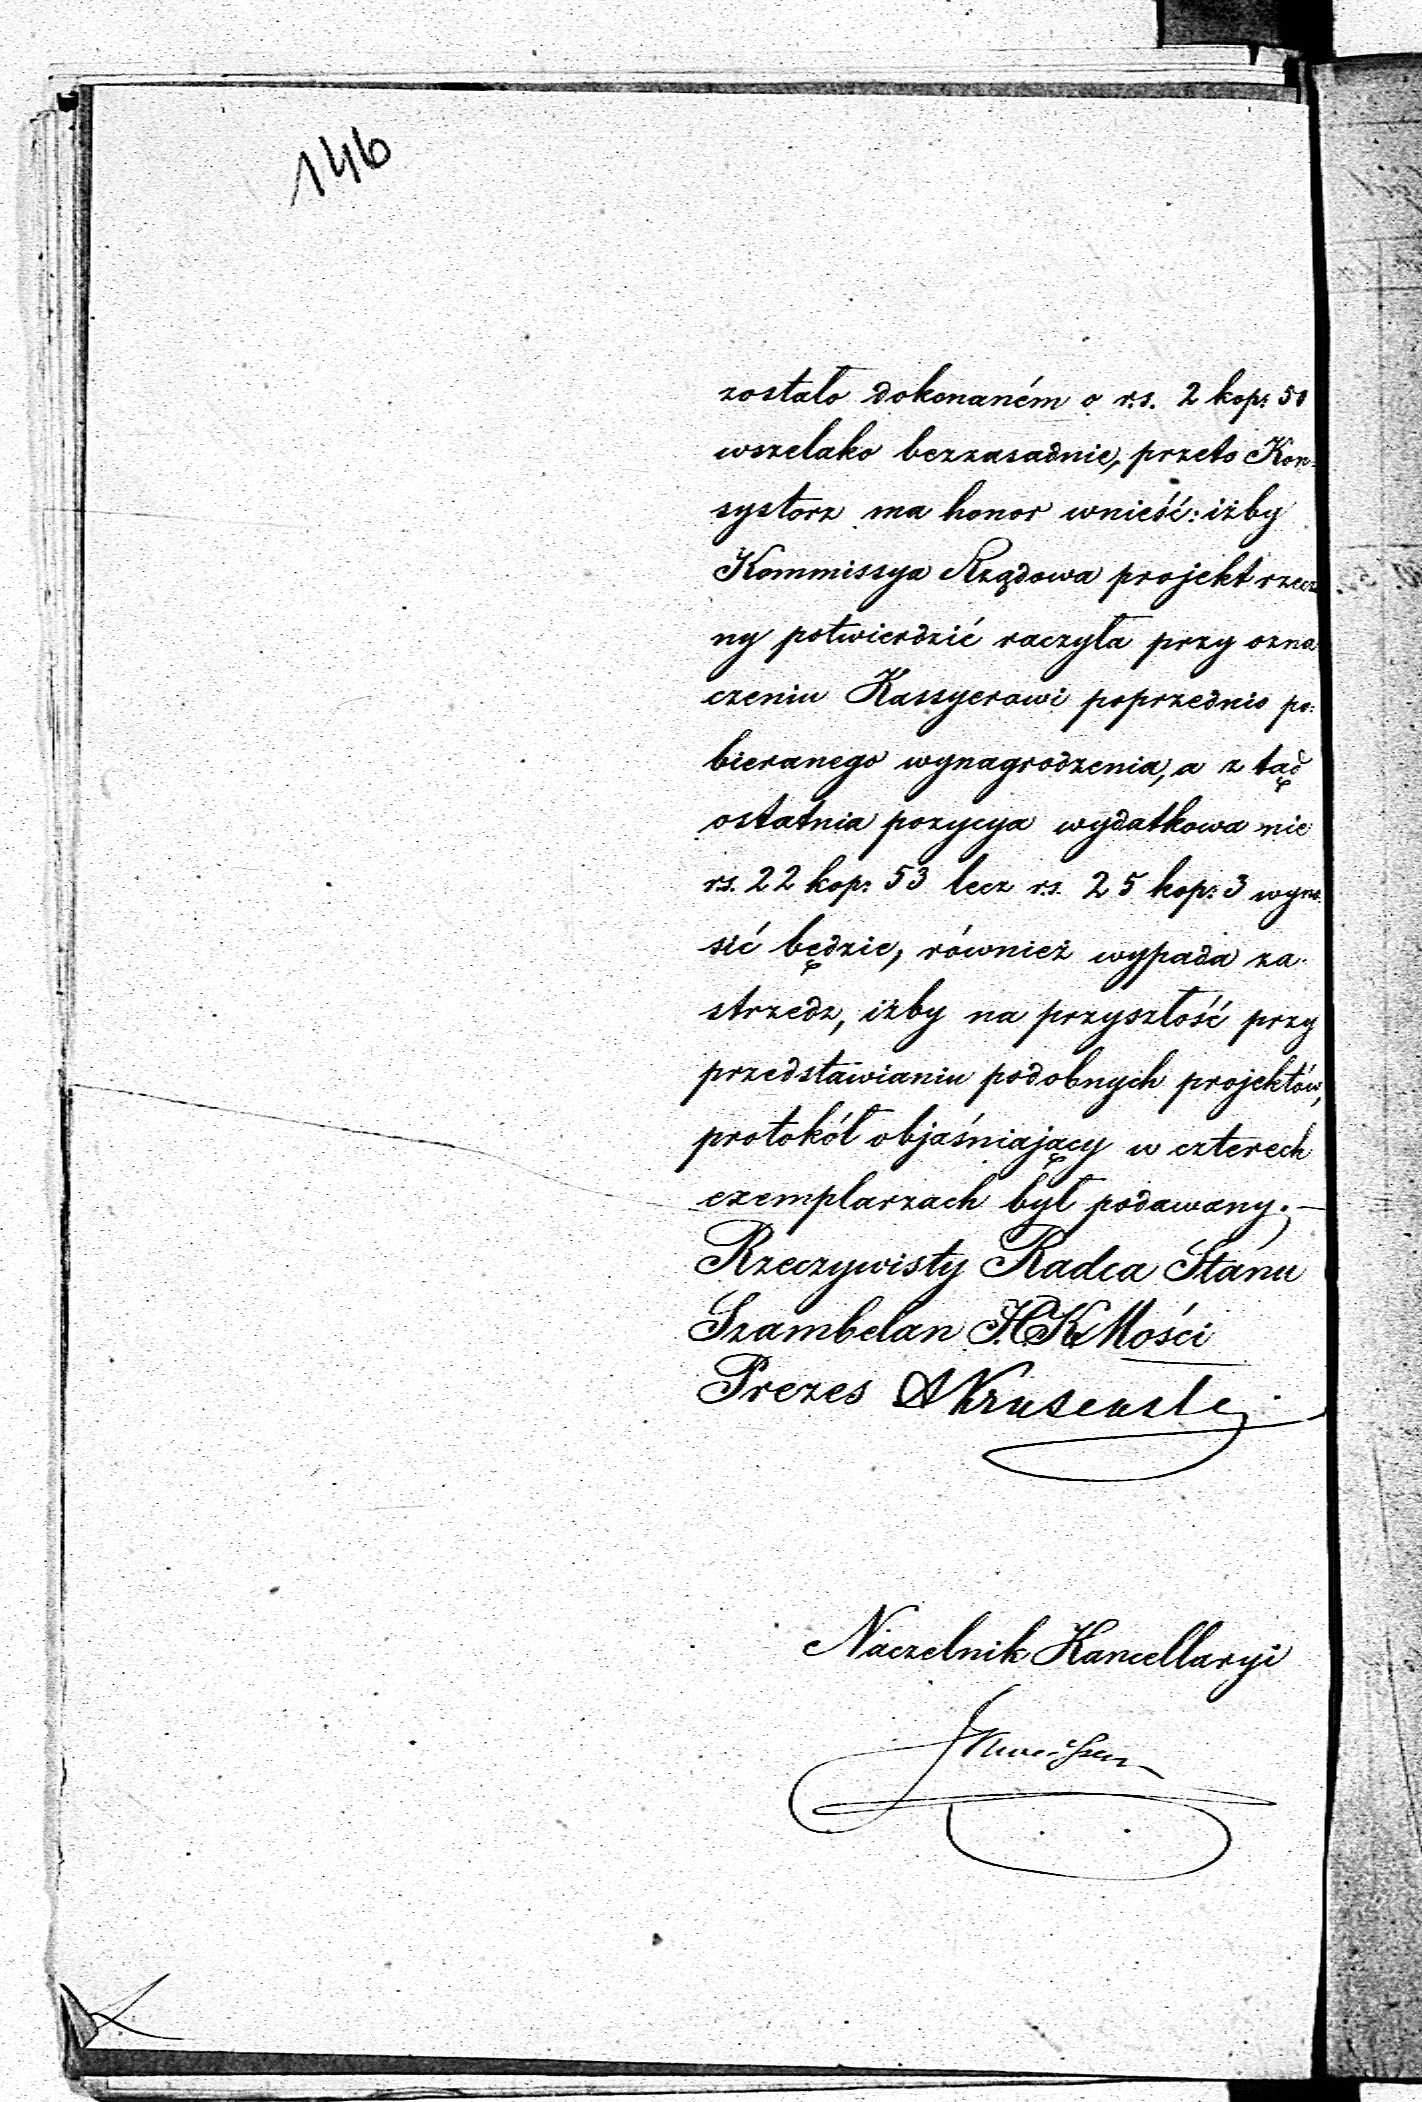 146
zostało dokonaném o rs. 2 kop: 50
wszelako bezzasadnie, przeto Kon=
systorz ma honor wnieść: iżby
Kommissya Rządowa projekt rzecz
ny potwierdzić raczyła przy ozna=
czeniu Kassyerowi poprzednio po=
bieranego wynagrodzenia, a z tąd
ostatnia pozycya wydatkowa nie
rs. 22 kop: 53 lecz rs. 25 kop: 3 wyno=
sić będzie, również wypada za-
strzedz, iżby na przyszłość przy
przedstawianiu podobnych projektów,
protokół objaśniający w czterech
exemplarzach był podawany. —
Rzeczywisty Radca Stanu
Szambelan J.C.K. Mości
Prezes
Naczelnik Kancellaryi